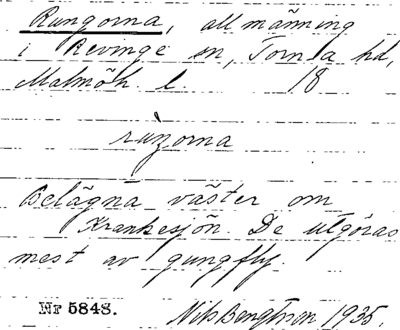 Rungorna, allmänning
i Revinge sn, Torna hd,
Malmöh. l. 18
ruŋorna
Belägna väster om
Krankesjön. De utgöras
mest av gungfly.
Nr 5848. Nils Bengtsson 1935.